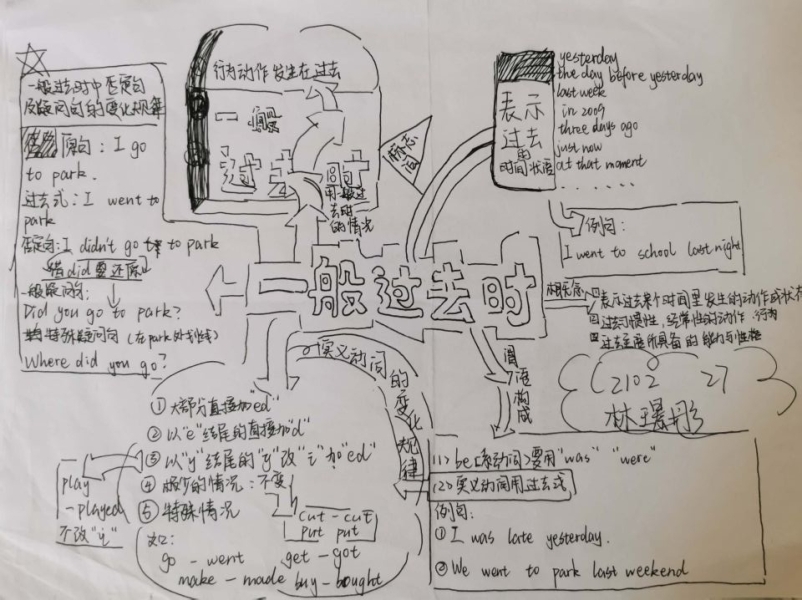 一般过去时中否定句
及疑问句的变化规律
原句：I go
to park.
过去式：I went to
park
否定句：I didn't go to park
借did要还原
一般疑问句：
Did you go to park?
特殊疑问句（在park处划线）
Where did you go?
行为动作发生在过去
一般
过去时
用一般过
去时
的情况
标志词
表示
过去
的
时间状语
yesterday
the day before yesterday
last week
in 2009
three days ago
just now
at that moment
......
例句：
I went to school last night
一般过去时
①表示过去某个时间里发生的动作或状态
②过去习惯性，经常性的动作、行为
③过去主语所具备的能力与性格
2102 27
林
谓语构成
(1) be(系动词)要用"was" "were"
(2)实义动词用过去式
例句：
① I was late yesterday.
② We went to park last weekend
实义动词的变化规律
① 大部分直接加"ed"
② 以"e"结尾的直接加"d"
③ 以"y"结尾的"y"改"i"加"ed"
④ 极少的情况：不变
⑤ 特殊情况
play
-played
不改"i"
cut - cut
put put
go - went get - got
make - made buy - bought